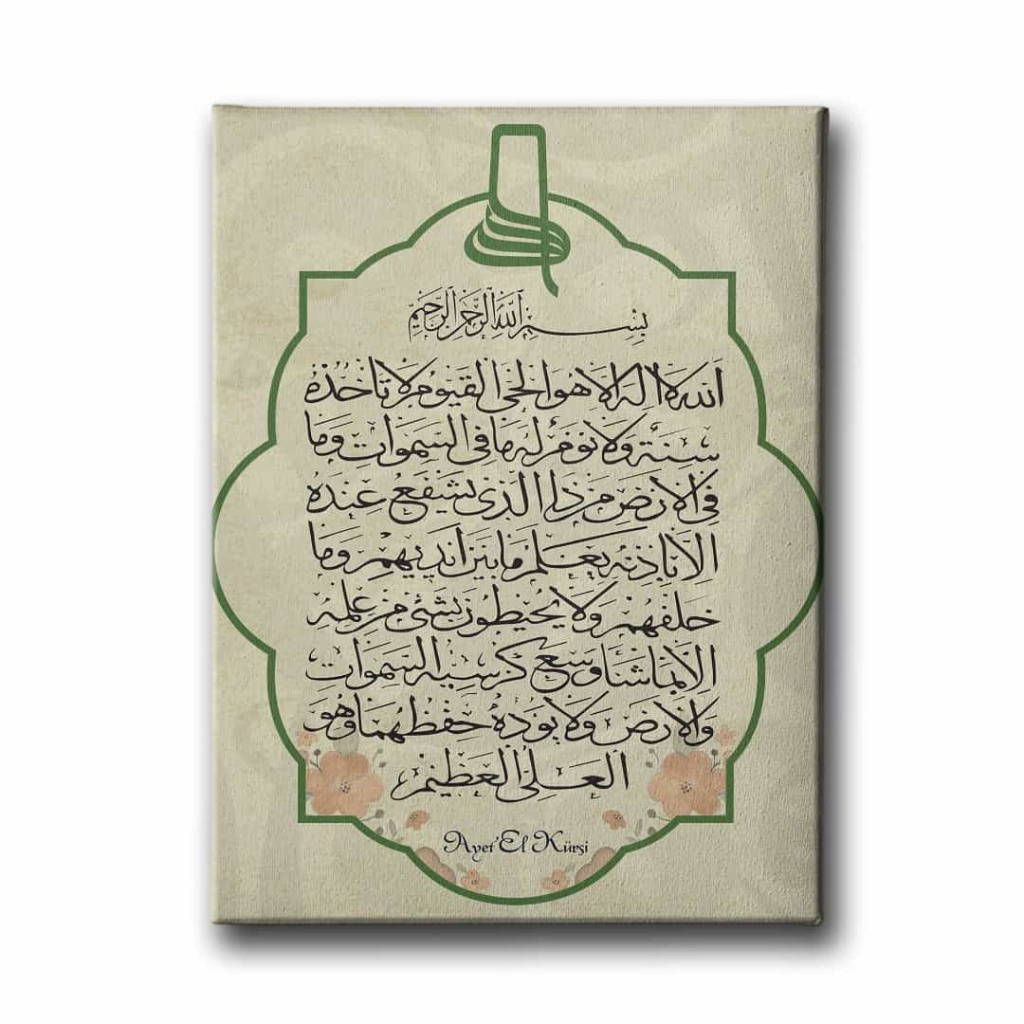 بسم الله الرحمن الرحيم
الله لا اله الا هو الحى القيوم لا تأخذه
سنة ولا نوم له ما فى السموات وما
فى الارض من ذا الذى يشفع عنده
الا باذنه يعلم ما بين ايديهم وما
خلفهم ولا يحيطون بشئ من علمه
الا بما شاء وسع كرسيه السموات
والارض ولا يوده حفظهما وهو
العلى العظيم
Ayet'El Kürsi